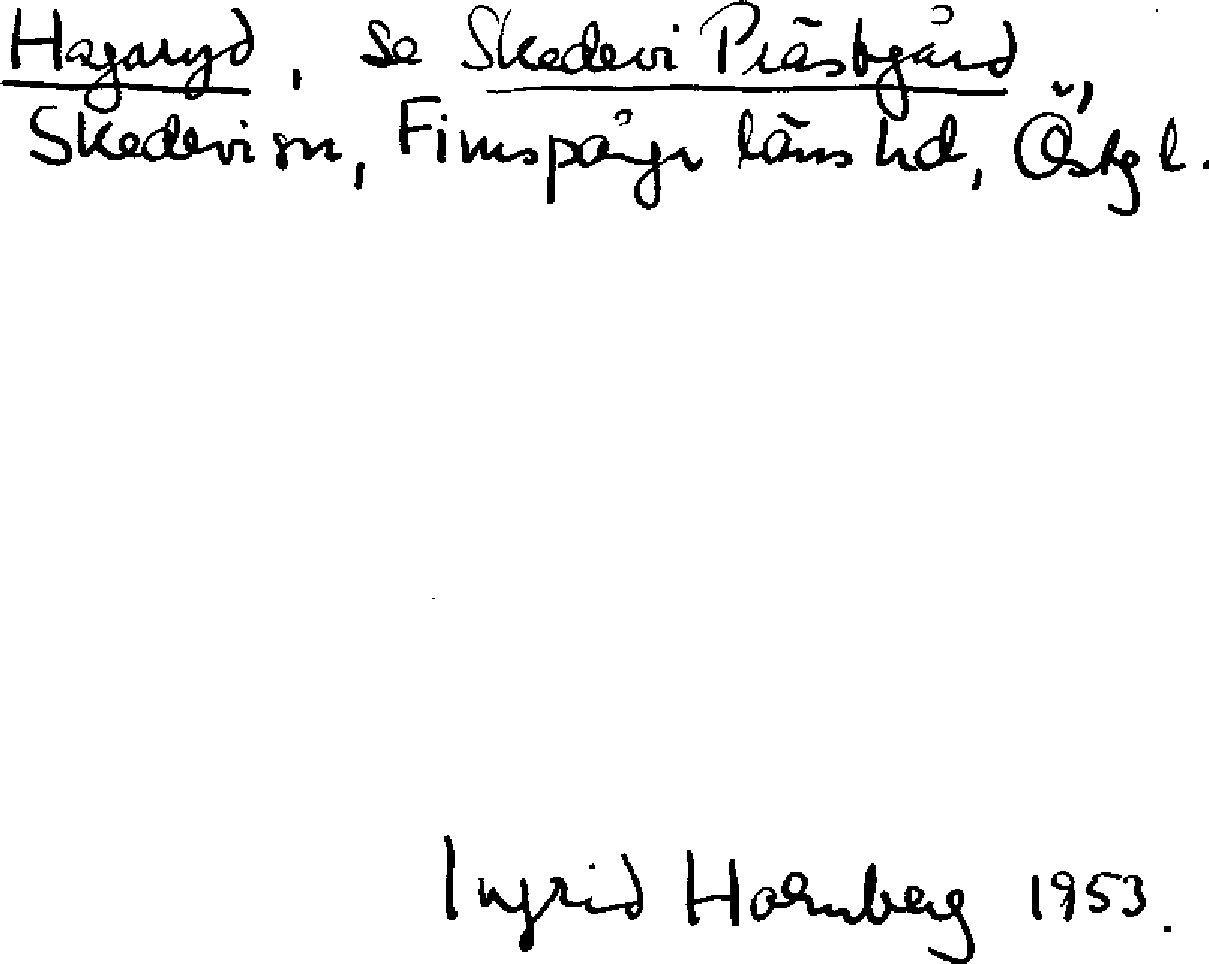 Hagaryd, se Skedevi Prästgård
Skedevi sn, Finspånga läns hd, Östgl.
Ingrid Holmberg 1953.